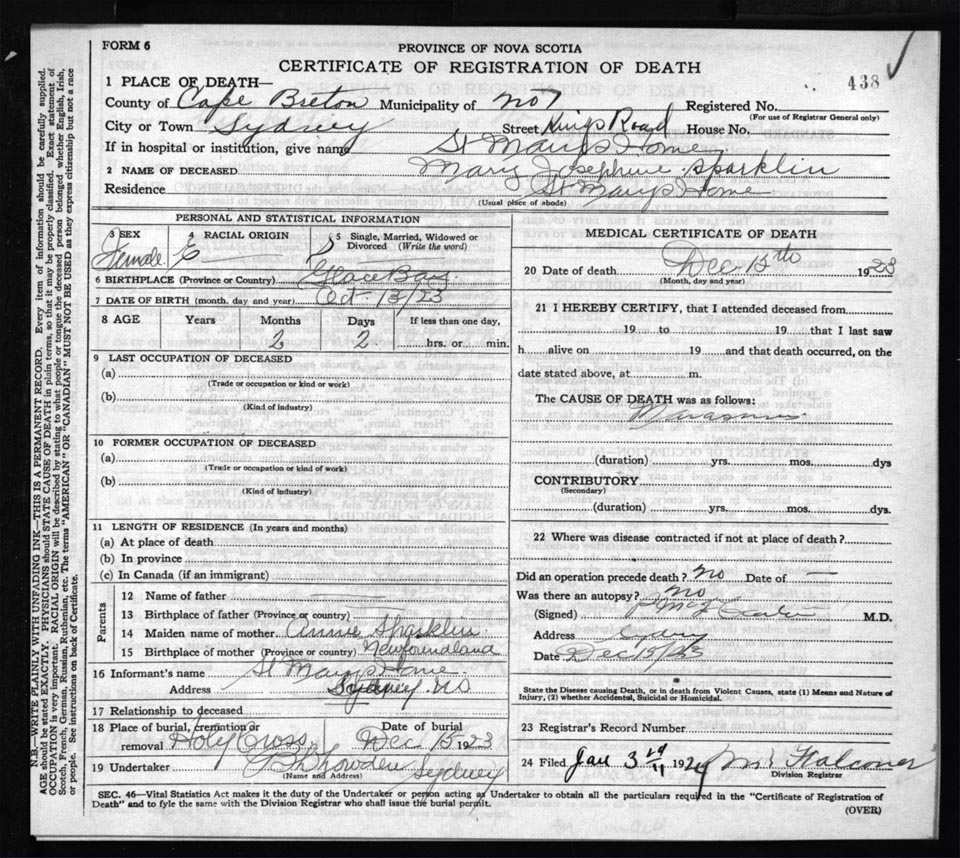 FORM 6
PROVINCE OF NOVA SCOTIA
CERTIFICATE OF REGISTRATION OF DEATH
438
1 PLACE OF DEATH—
County of Cape Breton Municipality of No 7 Registered No.
(For use of Registrar General only)
City or Town Sydney Street Kings Road House No.
If in hospital or institution, give name St Marys Home
2 NAME OF DECEASED Mary Josephine Sparklin
Residence St Marys Home
(Usual place of abode)
PERSONAL AND STATISTICAL INFORMATION
3 SEX 4 RACIAL ORIGIN 5 Single, Married, Widowed or Divorced (Write the word)
Female E S
6 BIRTHPLACE (Province or Country) Glace Bay
7 DATE OF BIRTH (month, day and year) Oct 13/23
8 AGE Years Months Days If less than one day,
2 2 hrs. or min.
9 LAST OCCUPATION OF DECEASED
(a)
(Trade or occupation or kind or work)
(b)
(Kind of industry)
10 FORMER OCCUPATION OF DECEASED
(a)
(Trade or occupation or kind or work)
(b)
(Kind of industry)
11 LENGTH OF RESIDENCE (In years and months)
(a) At place of death
(b) In province
(c) In Canada (if an immigrant)
Parents
12 Name of father
13 Birthplace of father (Province or country)
14 Maiden name of mother Annie Sparklin
15 Birthplace of mother (Province or country) Newfoundland
16 Informant's name St Marys Home
Address Sydney NS
17 Relationship to deceased
18 Place of burial, cremation or removal Holy Cross Date of burial Dec 15 1923
19 Undertaker Sydney
(Name and Address)
MEDICAL CERTIFICATE OF DEATH
20 Date of death Dec 15th 1923
(Month, day and year)
21 I HEREBY CERTIFY, that I attended deceased from
19 to 19 that I last saw
h alive on 19 and that death occurred, on the
date stated above, at m.
The CAUSE OF DEATH was as follows:
Marasmus
(duration) yrs. mos. dys
CONTRIBUTORY
(Secondary)
(duration) yrs. mos. dys.
22 Where was disease contracted if not at place of death?
Did an operation precede death? no Date of —
Was there an autopsy? no
(Signed) M.D.
Address Sydney
Date Dec 15/23
State the Disease causing Death, or in death from Violent Causes, state (1) Means and Nature of
Injury, (2) whether Accidental, Suicidal or Homicidal.
23 Registrar's Record Number
24 Filed Jan 3rd 1924 Falconer
Division Registrar
SEC. 46—Vital Statistics Act makes it the duty of the Undertaker or person acting as Undertaker to obtain all the particulars required in the "Certificate of Registration of
Death" and to fyle the same with the Division Registrar who shall issue the burial permit.
(OVER)
N.B.—WRITE PLAINLY WITH UNFADING INK—THIS IS A PERMANENT RECORD. Every item of information should be carefully supplied.
AGE should be stated EXACTLY. PHYSICIANS should STATE CAUSE OF DEATH in plain terms, so that it may be properly classified. Exact statement of
OCCUPATION is very important. RACIAL ORIGIN will be described by stating to what people or tongue the deceased person belonged whether English, Irish,
Scotch, French, German, Russian, Ruthenian, etc. The terms "AMERICAN" OR "CANADIAN" MUST NOT BE USED as they express citizenship but not a race
or people. See instructions on back of Certificate.